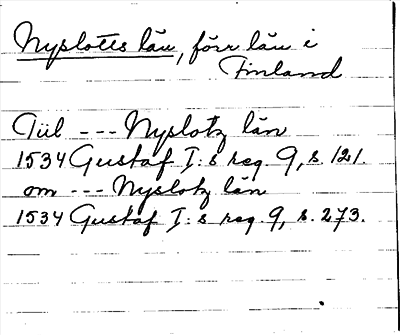 Nyslotts län, förr län i
Finland
Tiil --- Nyslotz län
1534 Gustaf I:s reg. 9, s. 121.
om --- Nyslotz län
1534 Gustaf I:s reg. 9, s. 273.